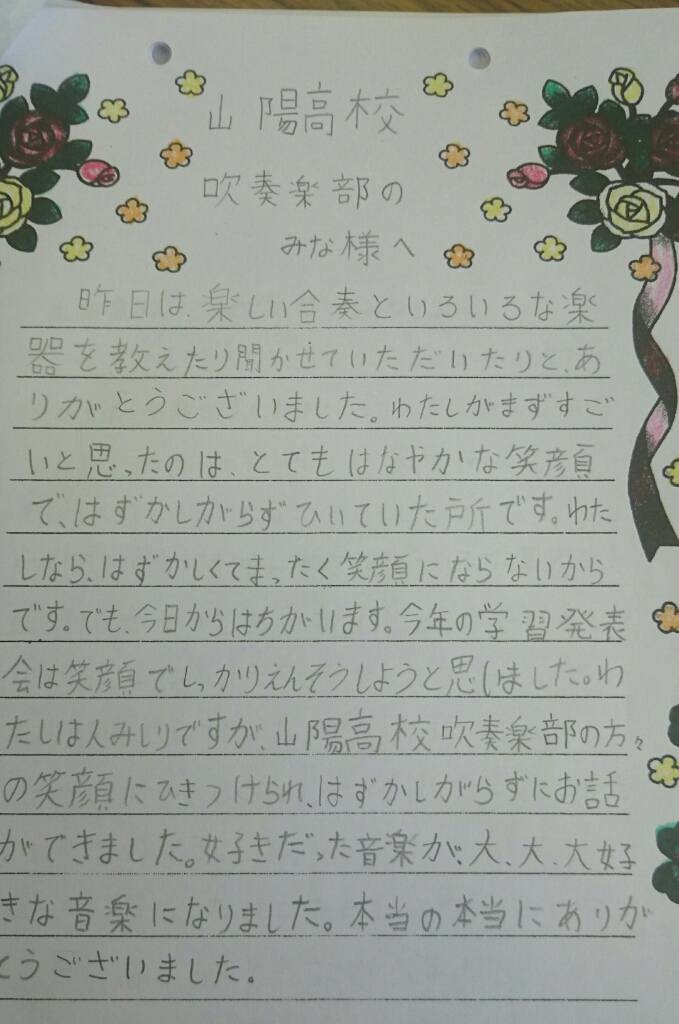 山陽高校
吹奏楽部の
みな様へ
昨日は、楽しい合奏といろいろな楽
器を教えたり聞かせていただいたりと、あ
りがとうございました。わたしがまずすご
いと思ったのは、とてもはなやかな笑顔
で、はずかしがらずひいていた所です。わた
しなら、はずかしくてまったく笑顔にならないから
です。でも、今日からはちがいます。今年の学習発表
会は笑顔でしっかりえんそうしようと思しました。わ
たしは人みしりですが、山陽高校吹奏楽部の方々
の笑顔にひきつけられ、はずかしがらずにお話
ができました。好きだった音楽が、大、大、大好
きな音楽になりました。本当の本当にありが
とうございました。